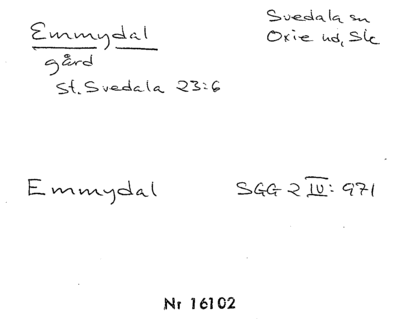 Emmydal
Svedala sn
Oxie hd, Sk
gård
St. Svedala 23:6
Emmydal
SGG 2 IV: 971
Nr 16102